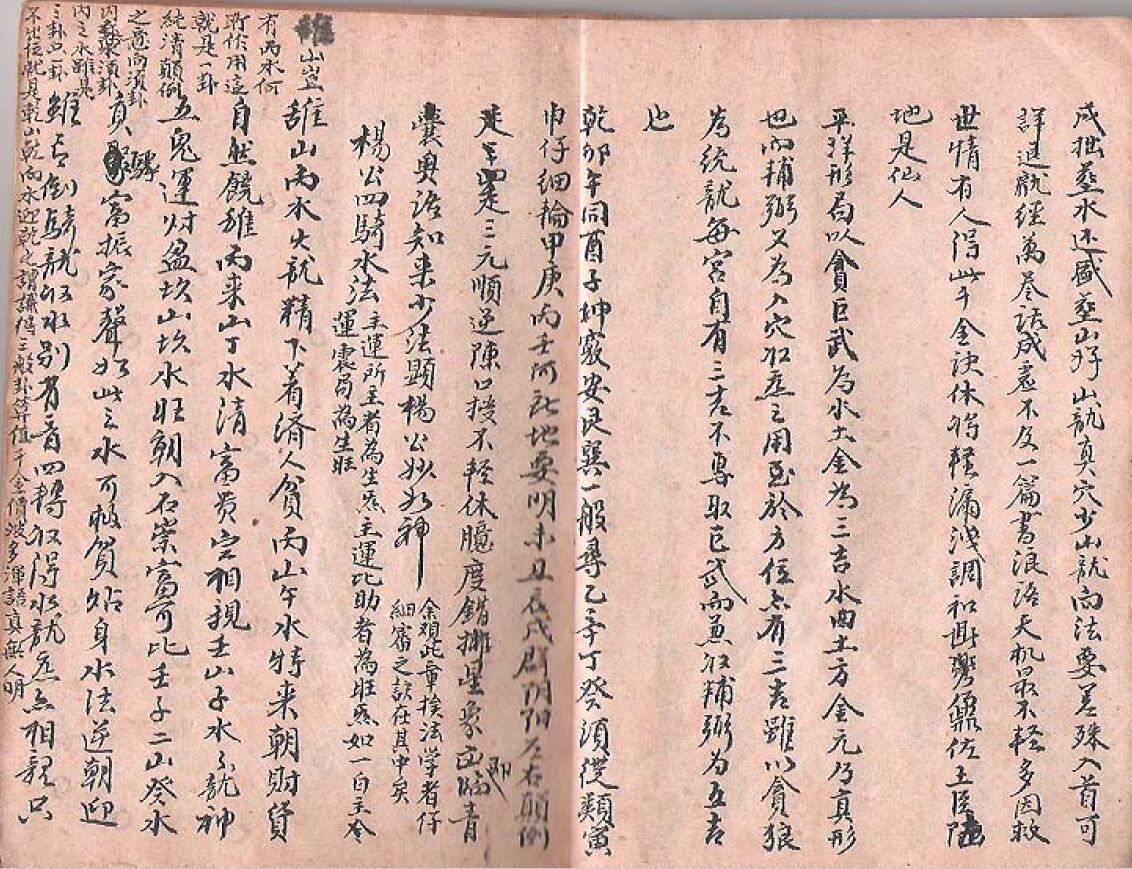 成拙蔭水还盛蔭山好山龍真穴少山龍向法要差殊入首可
詳退龍經萬卷說成套不及一篇書浪洛天机最不軽多因救
世情有人得此千金訣休將輕漏洩調和
地是仙人
平洋形局以貪巨武為水土金為三吉水曲土方金元乃真形
也而輔弼又為入穴收蔭之用至於方位亦有三吉雖以貪狼
為統龍每宮自有三吉不專取巨武而兼收輔弼為五吉
也
乾卯午同酉子坤竅安艮巽一般尋乙辛丁癸須從類寅
申仔細輪甲庚丙壬何配地要明未丑辰戌辟阴阳左右顛倒
是三元順逆陳口授不軽休臆度錯擁星象即青
囊奥語知来少法顯楊公妙如神
余观此章挨法学者仔
細審之訣在其中矣
楊公四騎水法
主運所主者為生炁主運比助者為旺炁如一白主令
運震局為生旺
離山丙水火龍精下着済人貧丙山午水特来朝財貨
自然饒離丙来山丁水清富贵定相親壬山子水
五鬼運财盈坎山坎水旺朝入石崇富可比壬子二山癸水
真驟富振家聲如此之水可救貧站身水法逆朝迎
離山豈
有丙水何
所作用這
就是一卦
純清顛倒
之意向須卦
内龍須卦
内之水雖是
三卦只一卦
雖言倒騎龍收水别有音四轉收得水龍炁点相親只
不比位就是乾山乾向水迎乾之謂識得三般卦算值千金價波多渾語真無人明